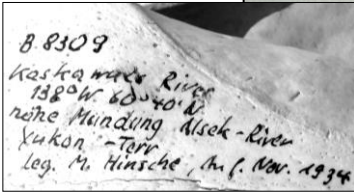 B.8309
Kaskawulsh River
138°W 60°40'N
nähe Mündung Alsek-River
Yukon-Terr
leg. M. Hinsche, Nov. 1934